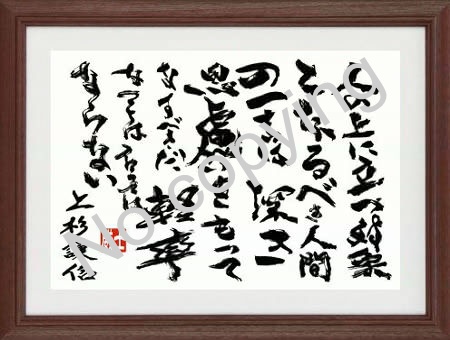 人の上に立つ対象
となるべき人間
の一言は 深き
思慮をもって
なすべきだ 軽率
なことは言っては
ならない
上杉謙信
No copying